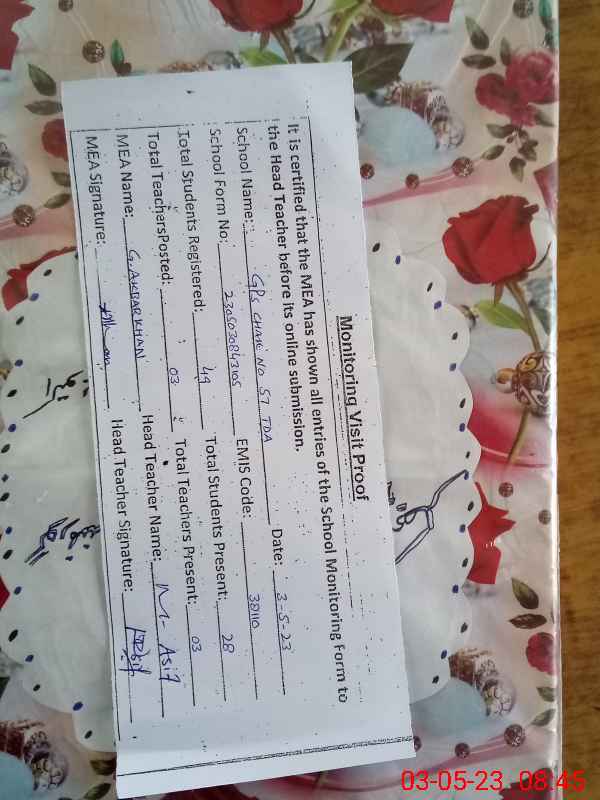 Monitoring Visit Proof
It is certified that the MEA has shown all entries of the School Monitoring Form to
the Head Teacher before its online submission.
School Name: GPS CHAK NO 57 TDA Date: 3-5-23
School Form No: 230503084310S EMIS Code: 38110
Total Students Registered: 49 Total Students Present: 28
Total TeachersPosted: 03 Total Teachers Present: 03
MEA Name: G. AKBAR KHAN Head Teacher Name: M. ASIF
MEA Signature: Head Teacher Signature:
03-05-23 08:45